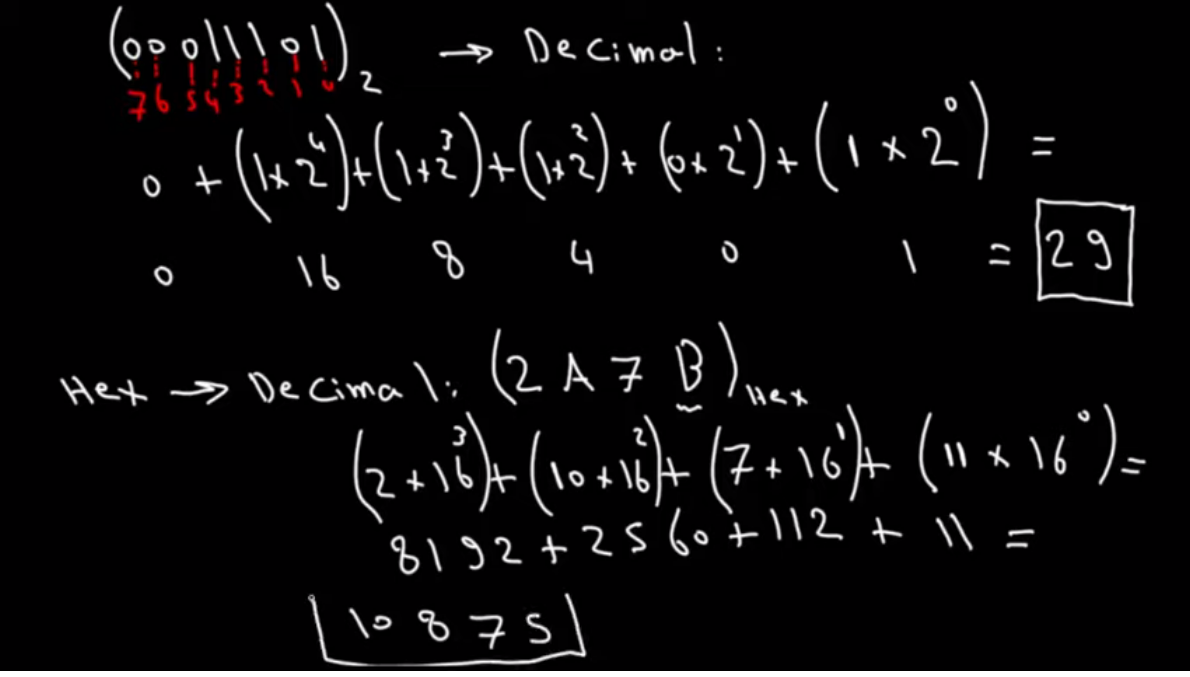 (00011101)₂ → Decimal:
7 6 5 4 3 2 1 0
0 + (1×2⁴)+(1×2³)+(1×2²)+(0×2¹)+(1×2⁰) =
0 16 8 4 0 1 = 29
Hex → Decimal: (2 A 7 B)Hex
(2×16³)+(10×16²)+(7×16¹)+(11×16⁰)=
8192+2560+112+11=
10875